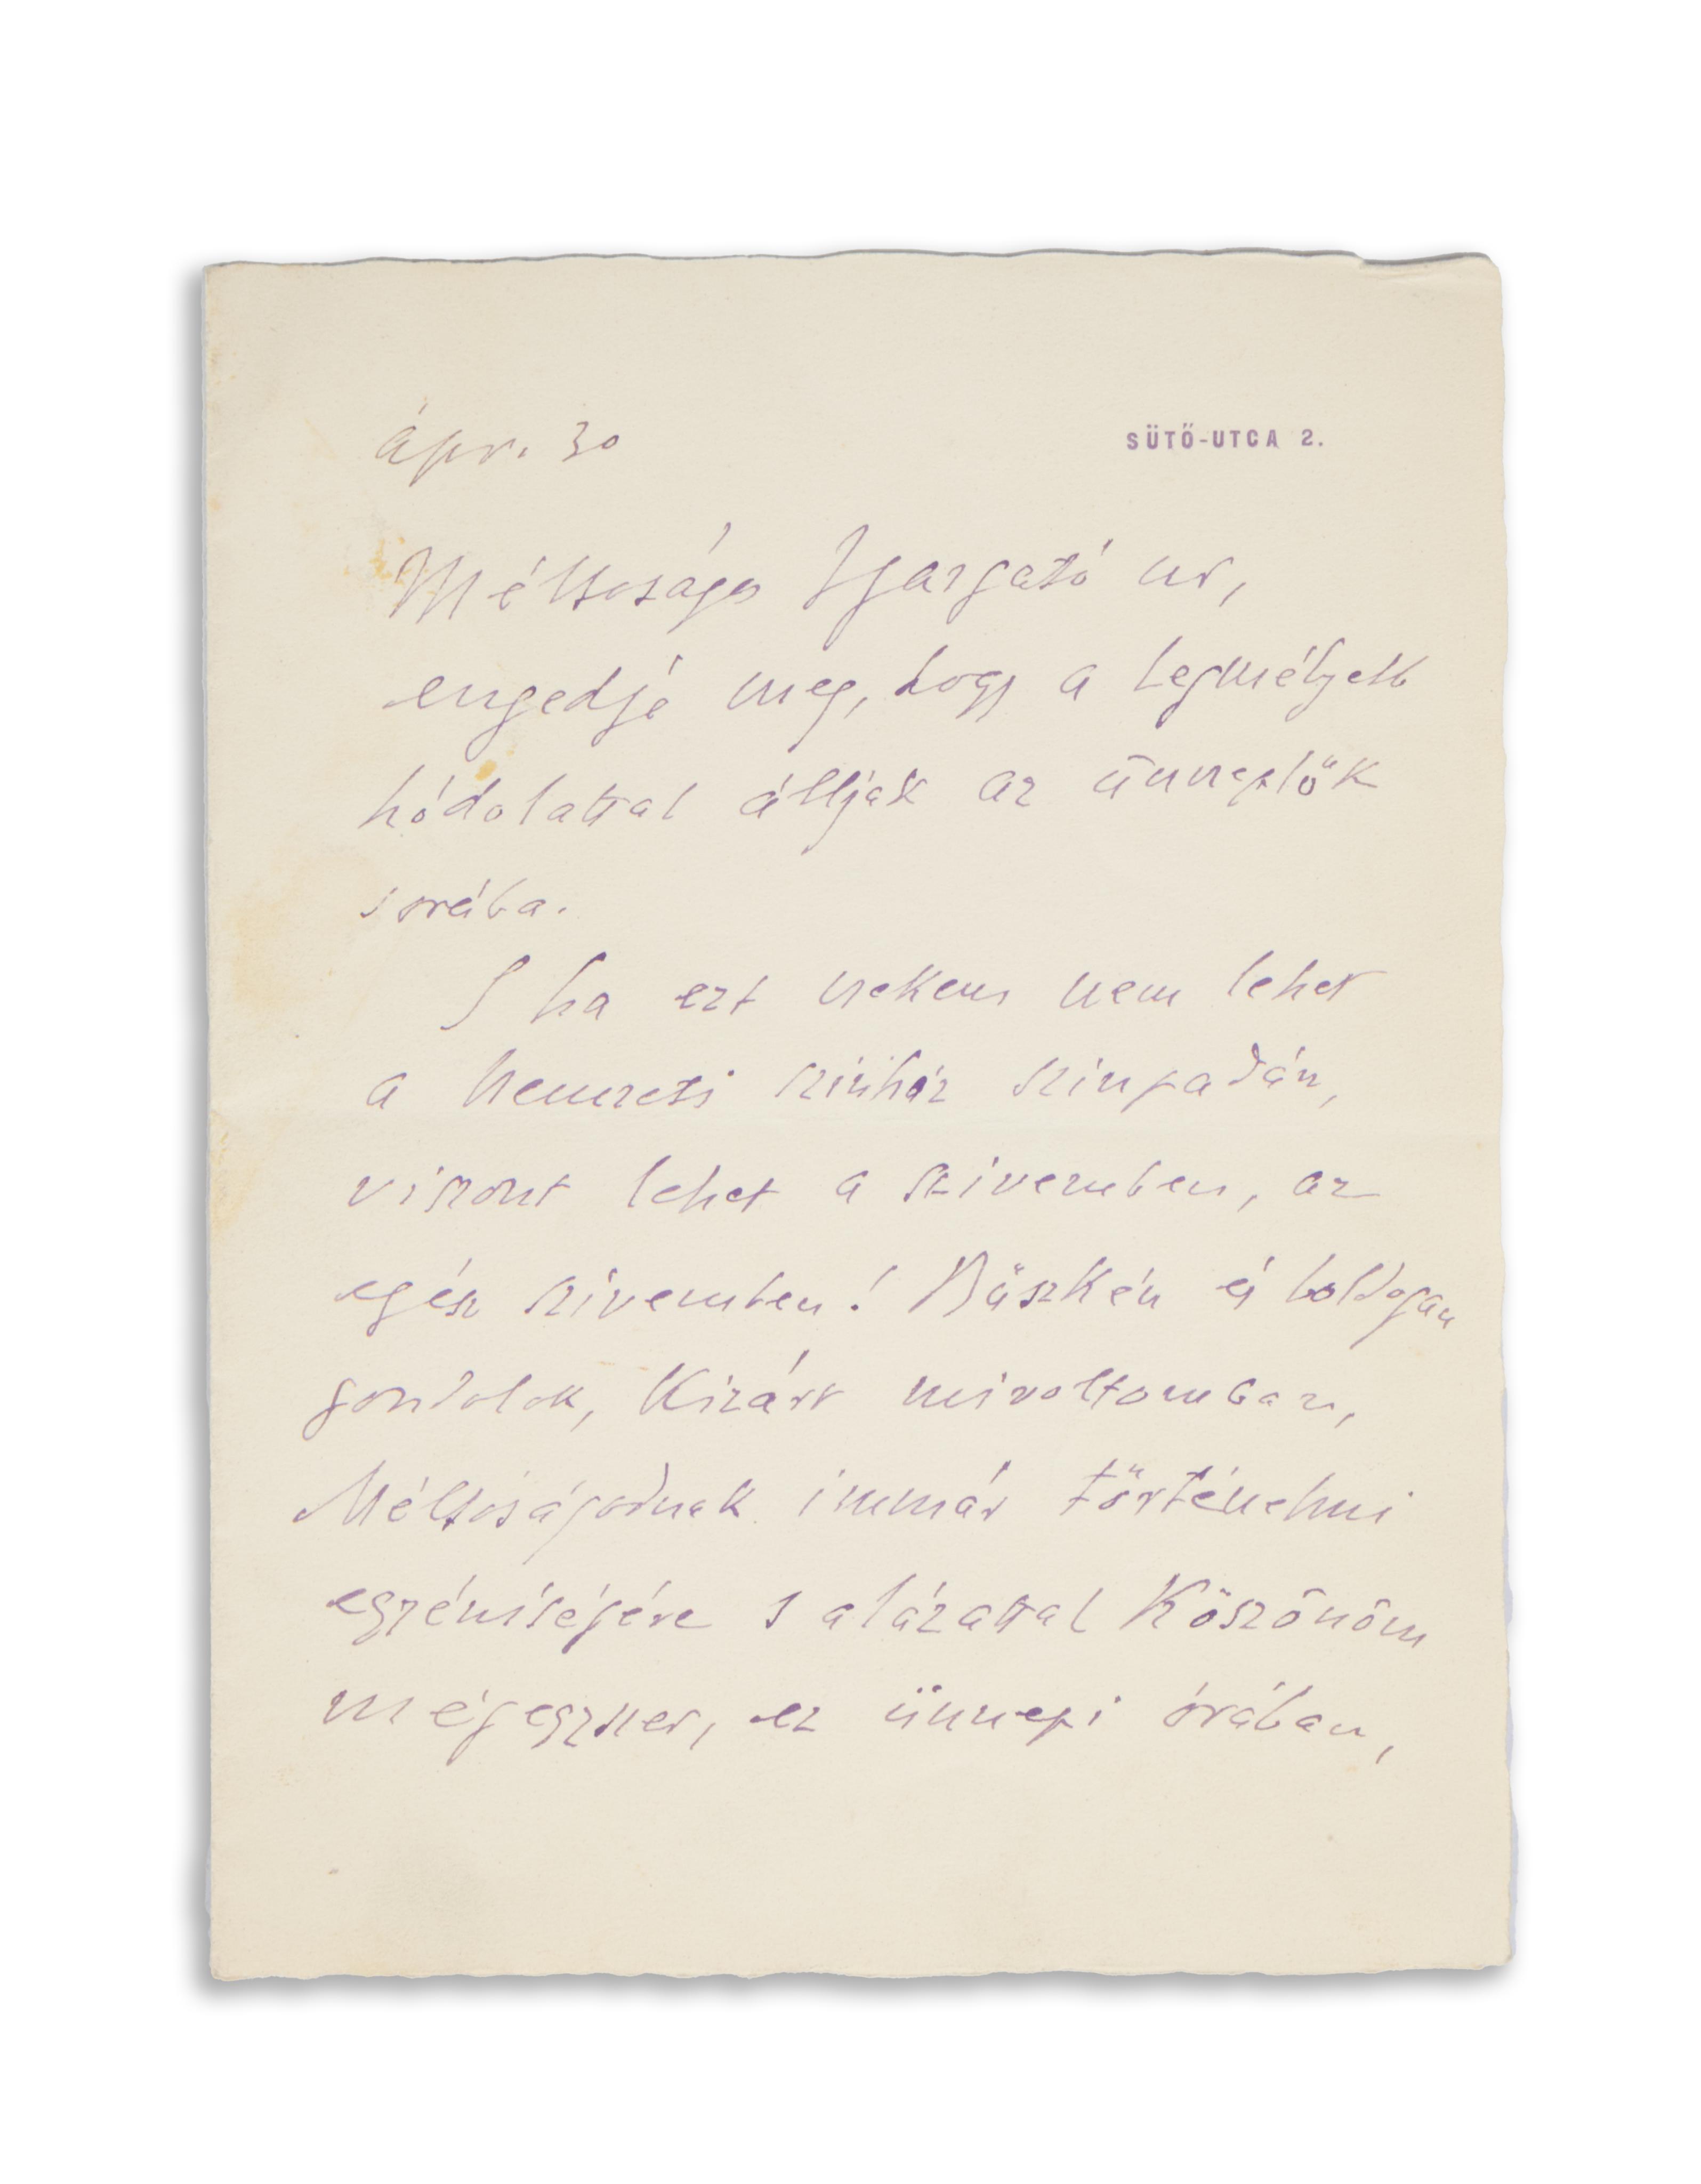 ápr. 30
SÜTŐ-UTCA 2.
Méltóságos Igazgató ur,
engedje meg, hogy a legmélyebb
hódolattal álljak az ünneplők
sorába.
S ha ezt nekem nem lehet
a Nemzeti szinház szinpadán,
viszont lehet a szivemben, az
egész szivemben! Büszkén és boldogan
gondolok, kizárt mivoltomban,
Méltóságodnak immár történelmi
egyéniségére s alázattal köszönöm
mégegyszer, ez ünnepi órában,